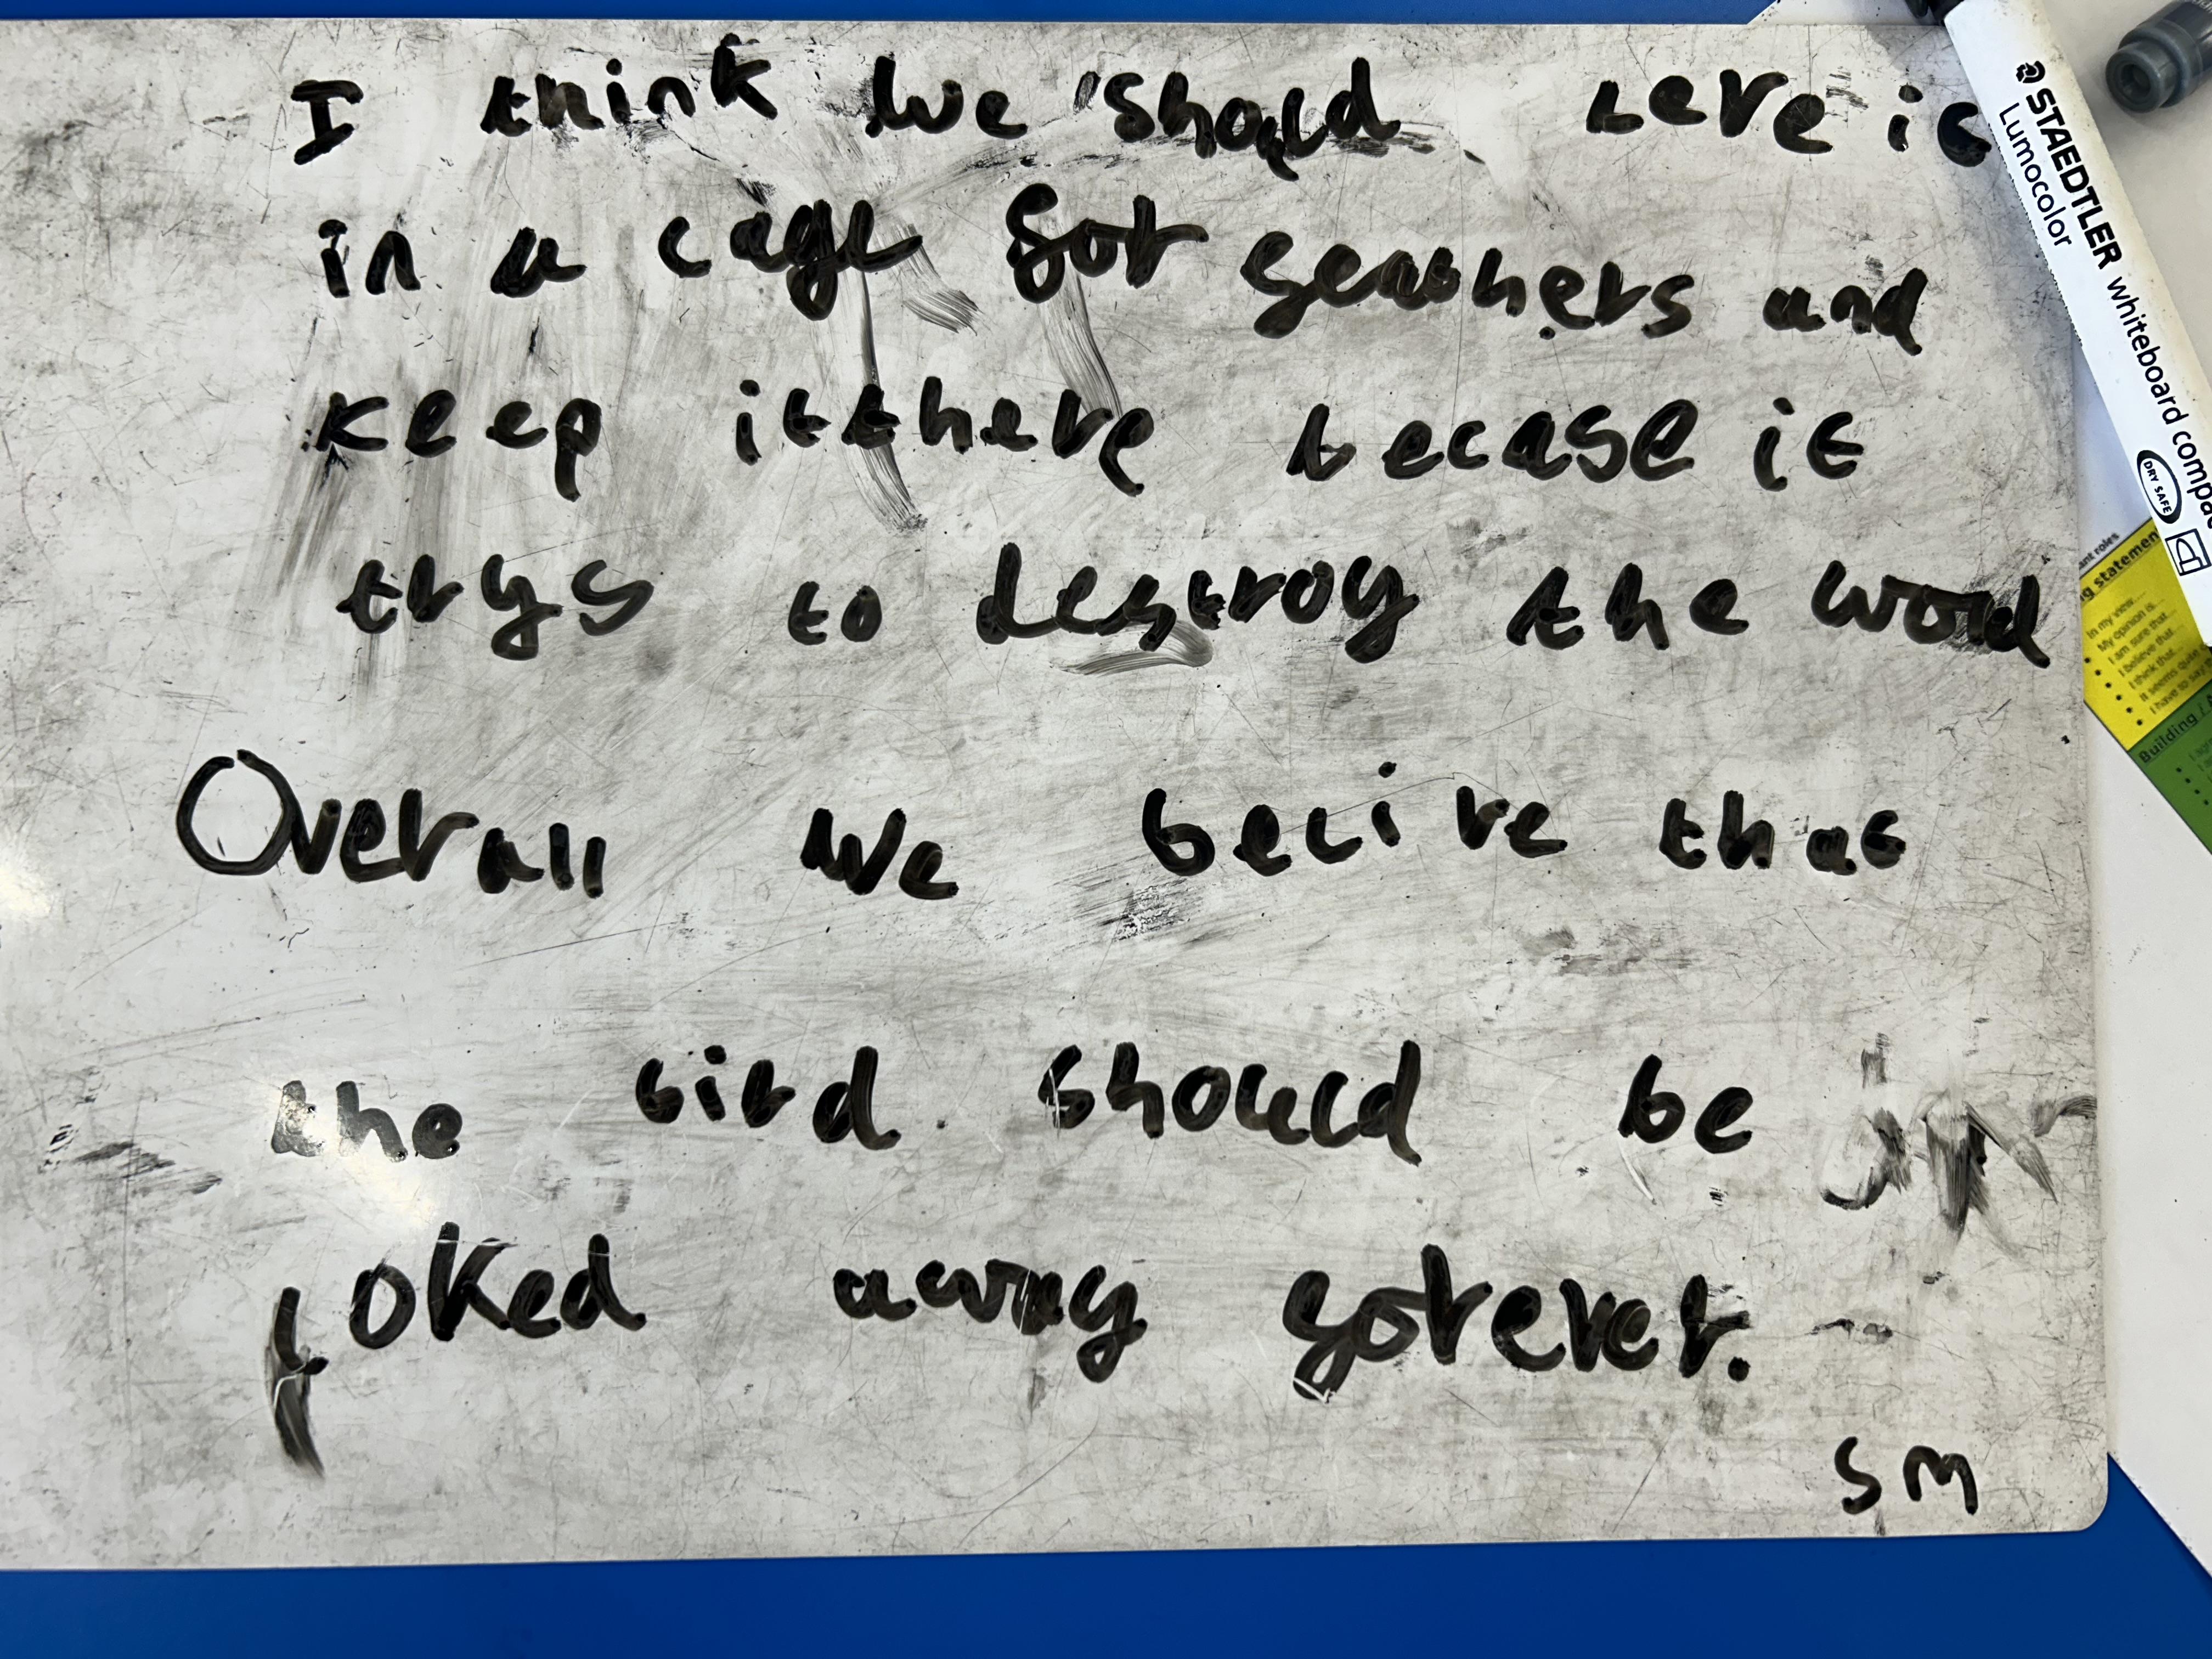 I think we should leve it
in a cage for geashers and
keep it there becase it
trys to destroy the word
Overall we belive that
the bird should be
loked away forever.
SM
STAEDTLER
Lumocolor
whiteboard compa
DRY SAFE
ant roles
g statemen
In my view...
My opinion is...
I am sure that...
I believe that...
I think that...
It seems quite
I have to say
Building